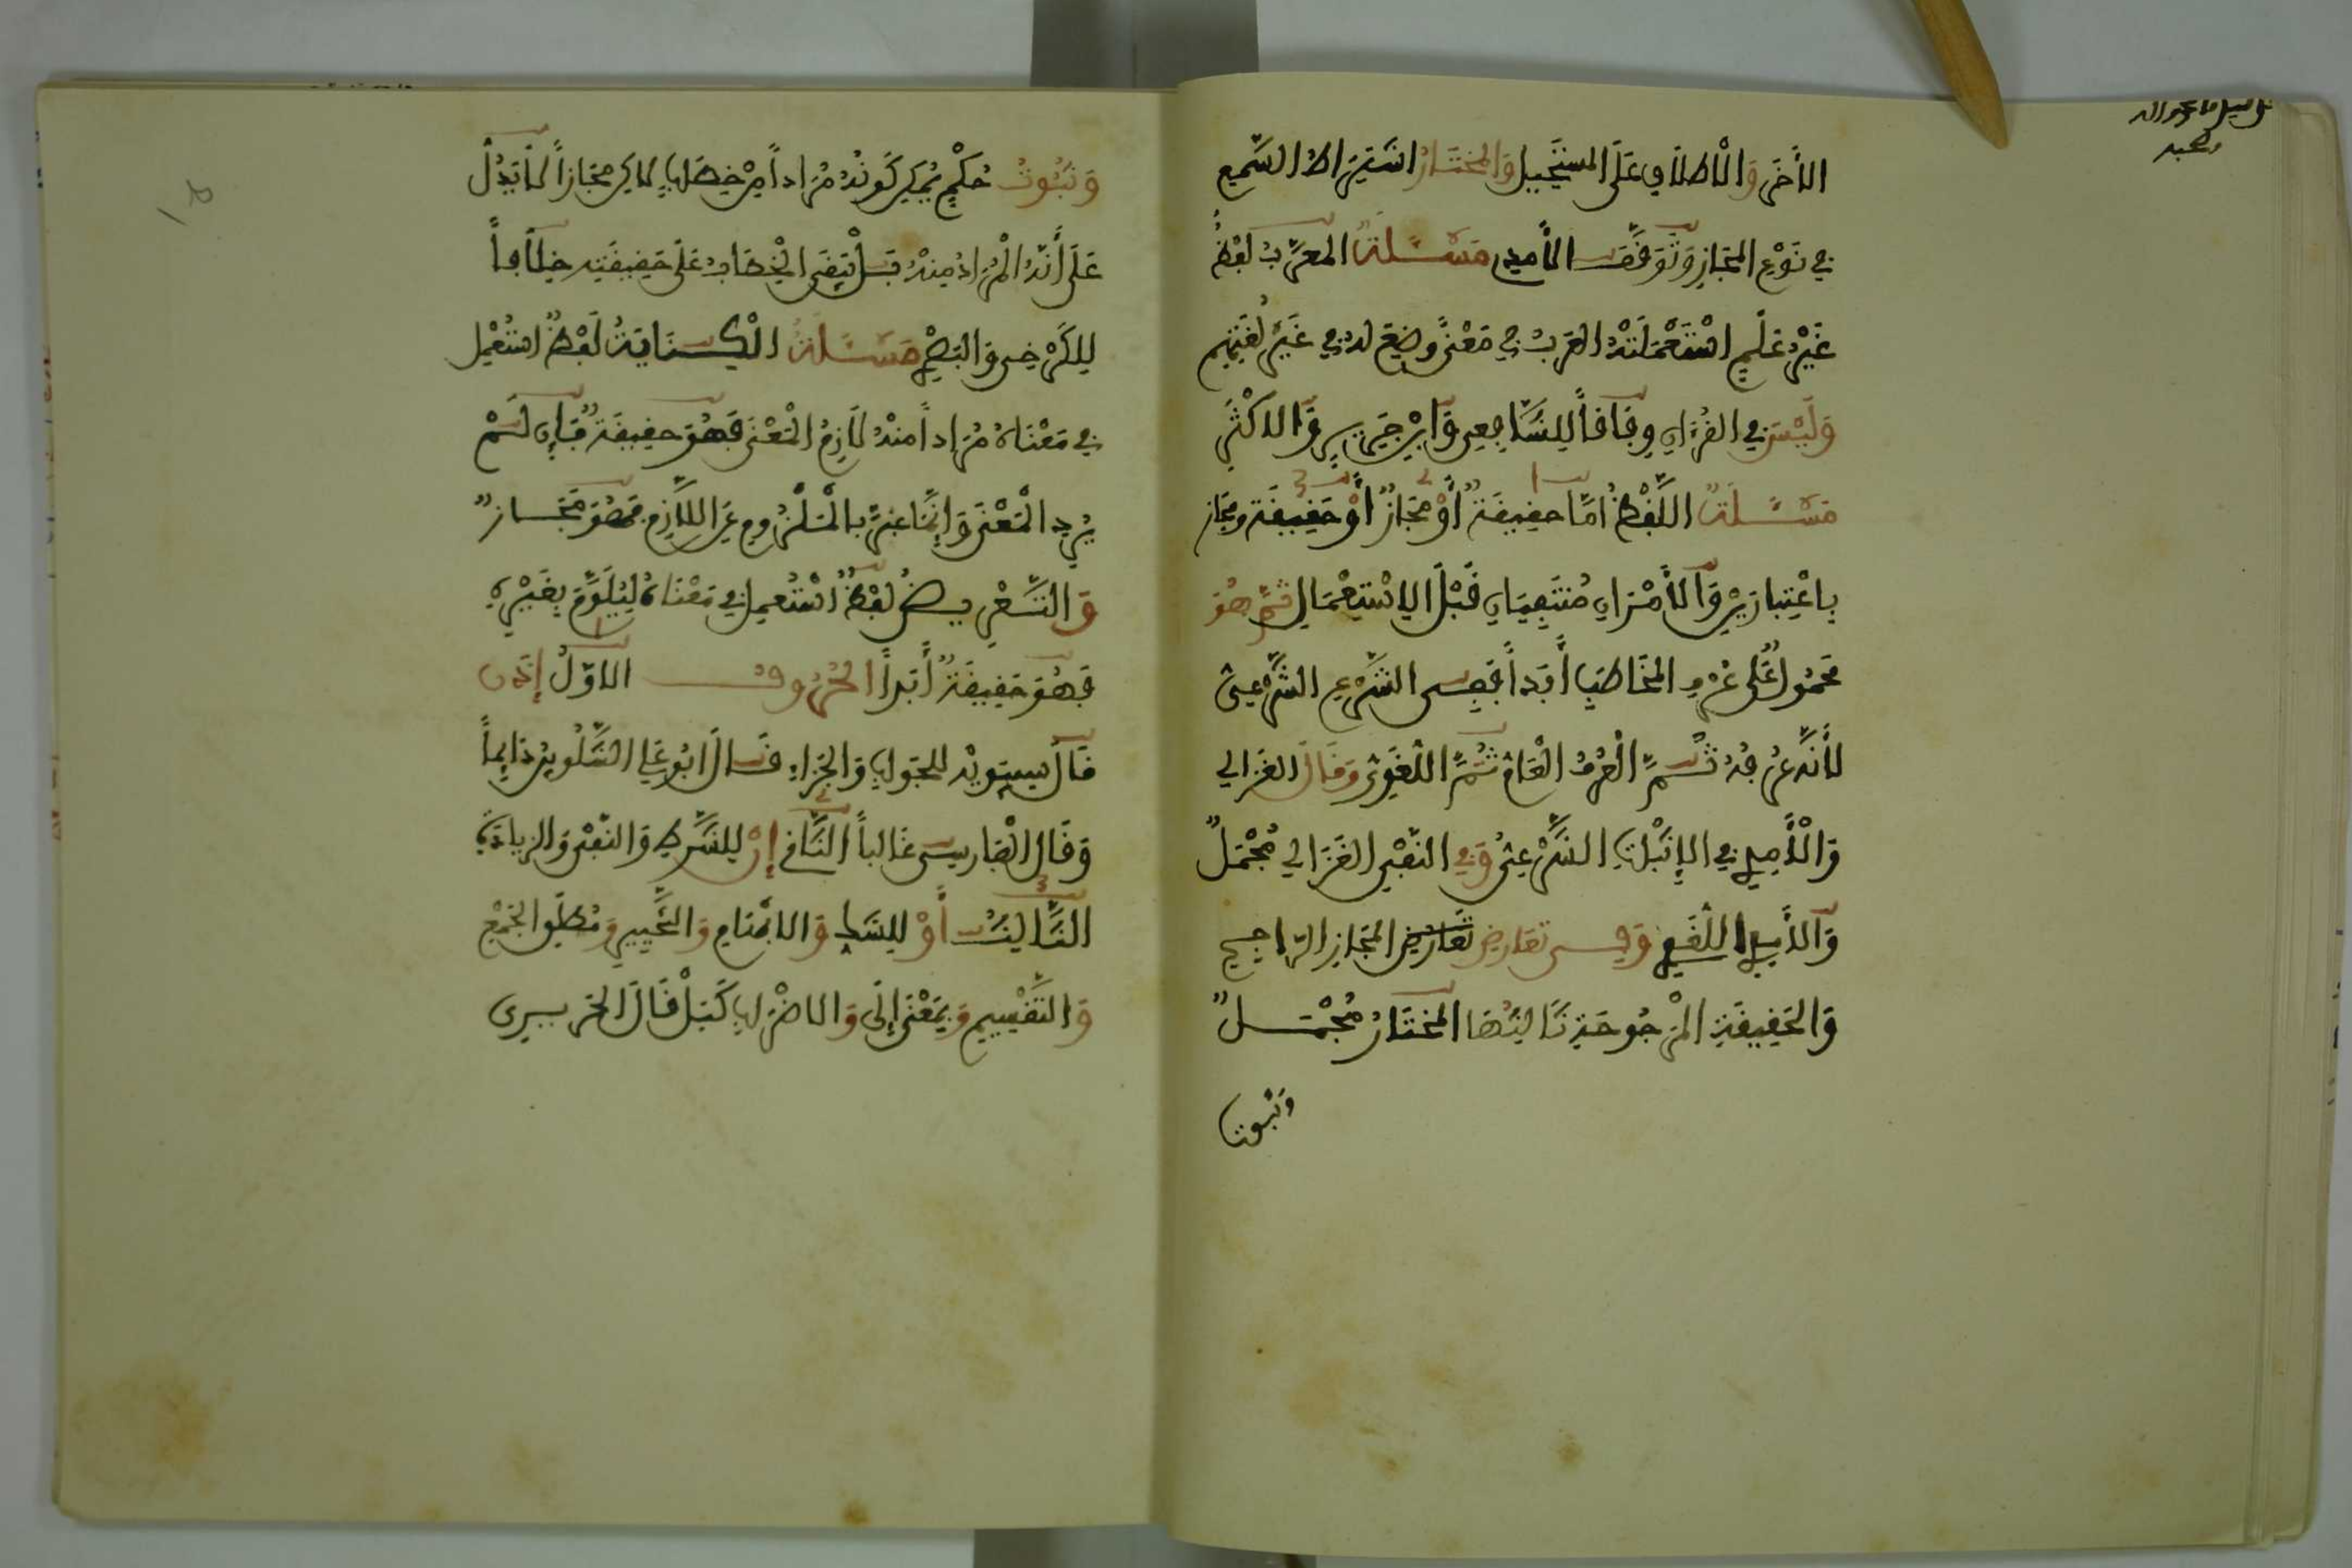 الأَخَرِ وَالْاطلَاقِ عَلَى المستَحِيلِ وَالمختَارُ اشتِرَاطُ السَّمعِ
فِي نَوْعِ المَجَازِ وَتَوَقَّفَ الأمدِي مَسْـَٔلَةٌ المعَرَّبُ لَفْظٌ
غَيْرُ عَلَمٍ اسْتَعْمَلَتْهُ العَرَبُ فِي مَعْنًى وضِعَ لهُ فِي غَيْرِ لُغَتِهِم
وَلَيْسَ فِي القُرْءَانِ وِفَاقاً لِلشَّافِعِي وَابْنِ جَرِيرٍ وَالاكْثَرِ
مَسْـَٔلَةٌ اللَّفْظُ امَّا حقِيقَةٌ أَوْ مَجَازٌ أَوْ حَقِيقَة ومجَاز
بِاعْتِبارَيْنِ وَالأَمْرَانِ مُنتَفِيَانِ قَبْلَ الاسْتِعْمَالِ ثمَّ هُوَ
محمُولٌ عَلَى عُرْفِ المخَاطَبِ أَبَداً فَفِى الشَّرْعِ الشَّرْعِىُّ
لأَنَّهُ عُرْفُهُ ثُمَّ الْعُرْفُ الْعَامُّ ثُمَّ اللُّغَوِىُّ وَقَالَ الغزالي
وَالأَمِدِي فِي الاثبَاتِ الشَّرْعِىُّ وَفِي النَّفْىِ الغَزَالِي مُجْمَلٌ
وَالأَمِدِي اللُّغَوِي وَفِى تعَارضِ تَعَارضِ المَجَازِ الرَّاجِحِ
وَالحَقِيقَةِ المَرْجُوحَةِ ثَالِثُهَا المختَارُ مُجْمَـلٌ
وَثُبُوتُ
وَثُبُوتُ حُكْمٍ يُمْكِنُ كَونُهُ مُرَاداً مِنْ خِطَابٍ لكن مجَازاً لَا يَدُلُّ
عَلَى أَنَّهُ الْمُرَادُ مِنْهُ بَلْ يَبْقَى الخِطَابُ عَلَى حَقِيقَتِهِ خِلَافاً
لِلكَرْخِى وَالبَصْرِي مَسْـَٔلَةٌ الكِـنَايَةُ لَفْظٌ استُعْمِلَ
فِي مَعْنَاهُ مُرَاداً منْهُ لَازِمُ الْمَعْنَى فَهْىَ حقِيقَةٌ فَإِن لَمْ
يُرِدِ الْمَعْنَى وَإِنَّمَا عبَّرَ بالْمَلْزُومِ عَنِ اللَّازِمِ فَهُوَ مَجَـازٌ
وَالتَّعْرِيـضُ لَفْظٌ اسْتُعمِلَ فِي مَعْنَاهُ لِيُلَوَّحَ بِغَيْرِهِ
فَهُوَ حَقِيقَةٌ أَبَداً الحُرُوفُ الاوَّلُ إِذَن
قَالَ سِيبَوَيْهِ للجَوَابِ وَالجَزَاءِ قَالَ ابُو عَلِي الشَّلُوبِينُ دَايِماً
وَقَال الْفَارِسِى غَالِباً الثَّانِي إِنْ لِلشَّرْطِ وَالنَّفْىِ وَالزيادَةِ
الثَّالِثُ أَوْ لِلشَّكِ وَالابْهَامِ وَالتَّخْيِيرِ وَمُطْلَقِ الجَمْعِ
وَالتَّقْسِيمِ وَبِمَعْنَى إِلَى وَالاضْرَابِ كَبَلْ قَالَ الحَرِيرِى